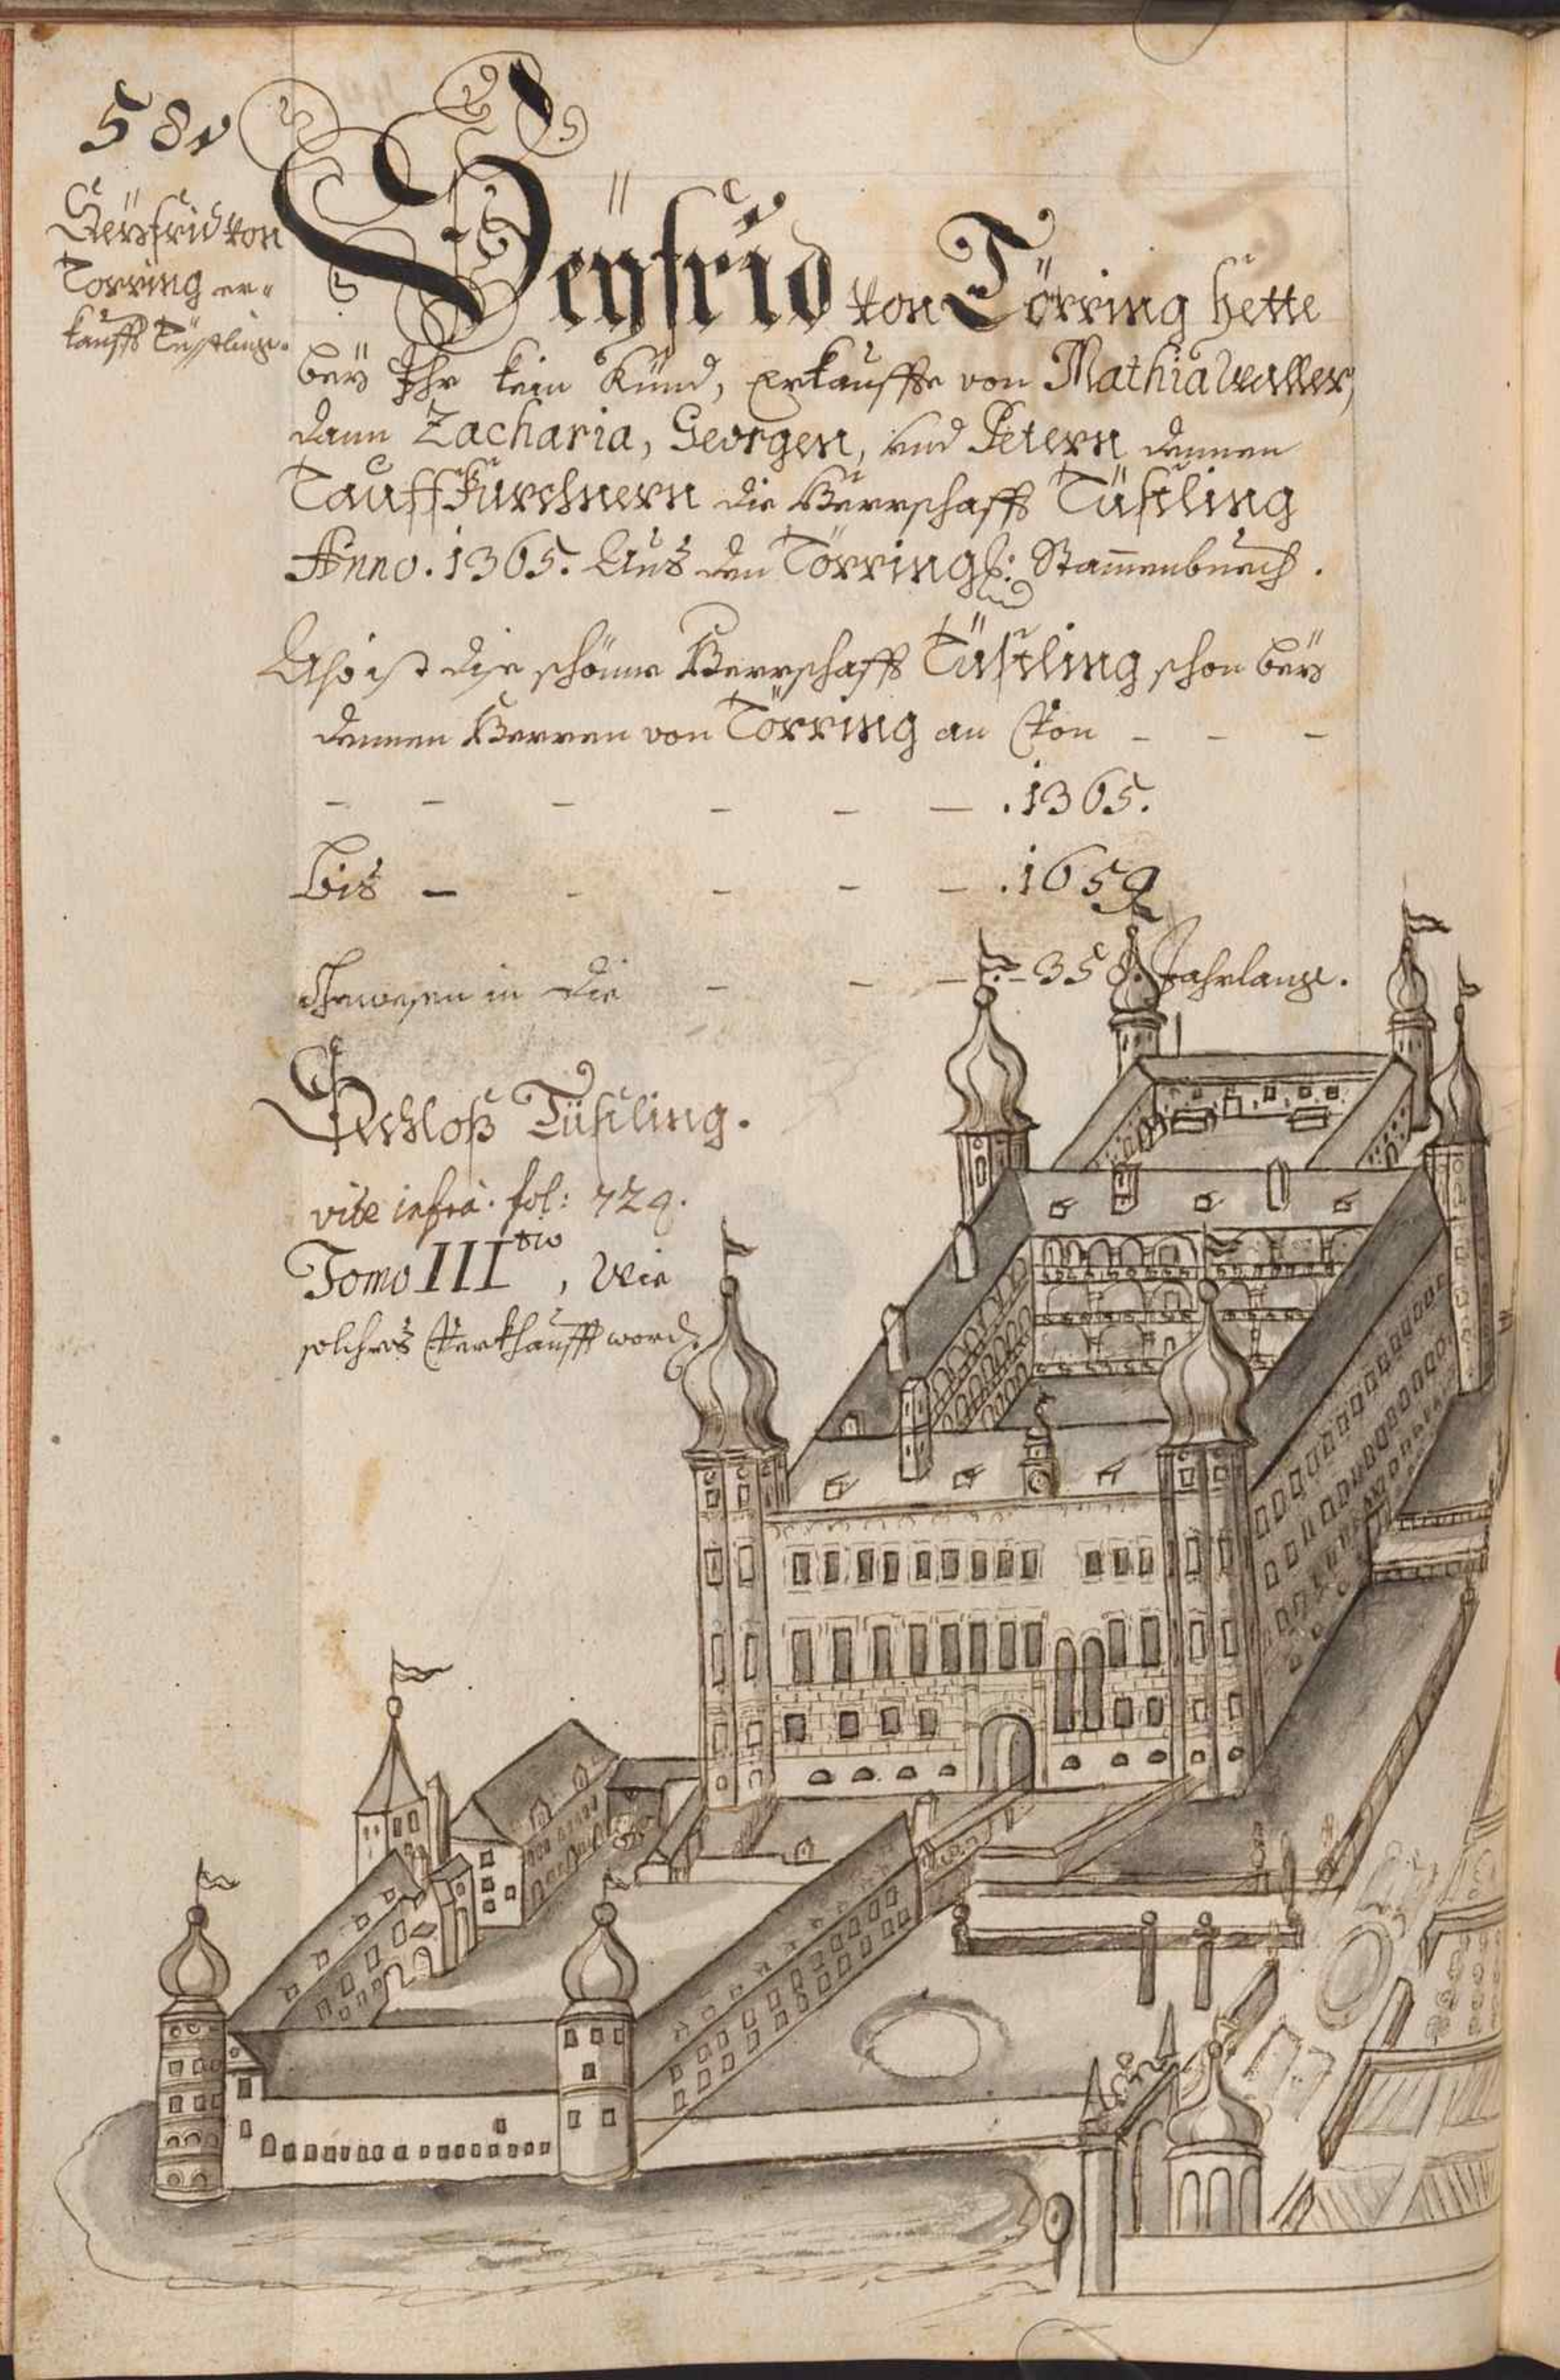 581
Seÿfrid von
Törring er=
kaufft Tüßling.
Seÿfrid von Törring hette
beÿ Ihr kein Künd, erkauffte von Mathia Waller,
dann Zacharia, Georgen, vnd Petern denen
Tauffkürchnern die Herrschafft Tüsling
Anno. 1365. Aus den Törring: Stammenbuech.
Also ist die schöne Herrschafft Tüsling schon beÿ
denen Herren von Törring an von – – –
– – – – – – .1365.
bis – – – – – .1659
gewesen in die – – – – 358. Jahrlang.
Schloß Tüsling.
vide infra. fol: 729.
Tomo III tio, Wie
solches verkhaufft word